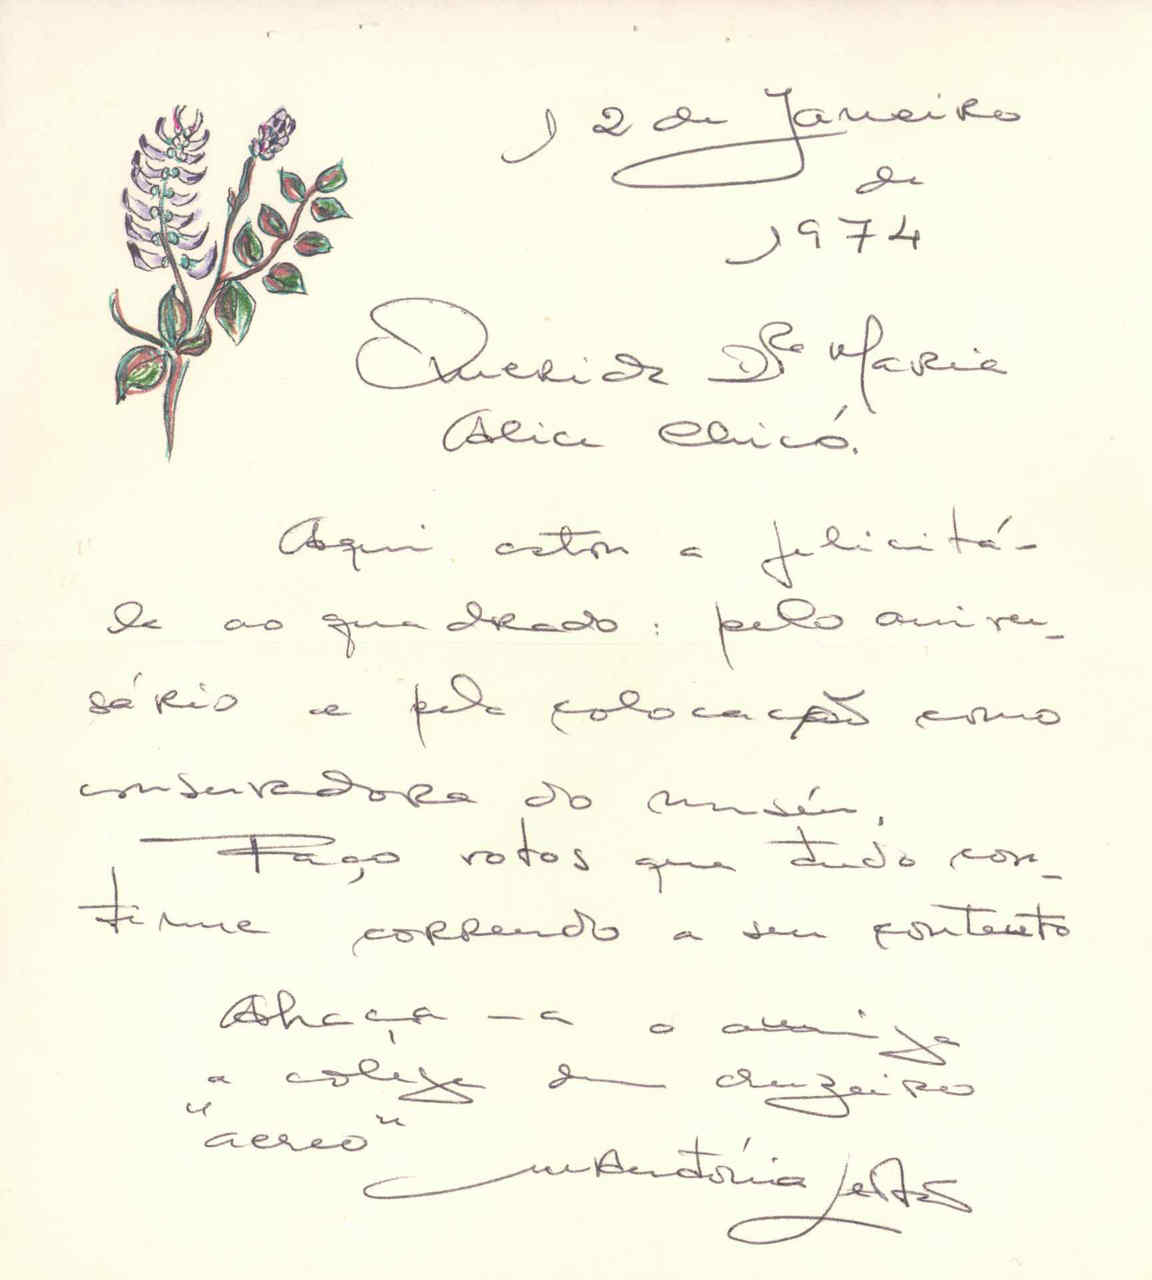 12 de Janeiro
de
1974
Querida Drª Maria
Alice Chicó.
Aqui estou a felicitá-
la ao quadrado: pelo aniver-
sário e pela colocação como
conservadora do museu.
Faço votos que tudo con-
tinue correndo a seu contento
Abraça-a a amiga
a colega de cruzeiro
"aereo"
Mª Antónia Leitão